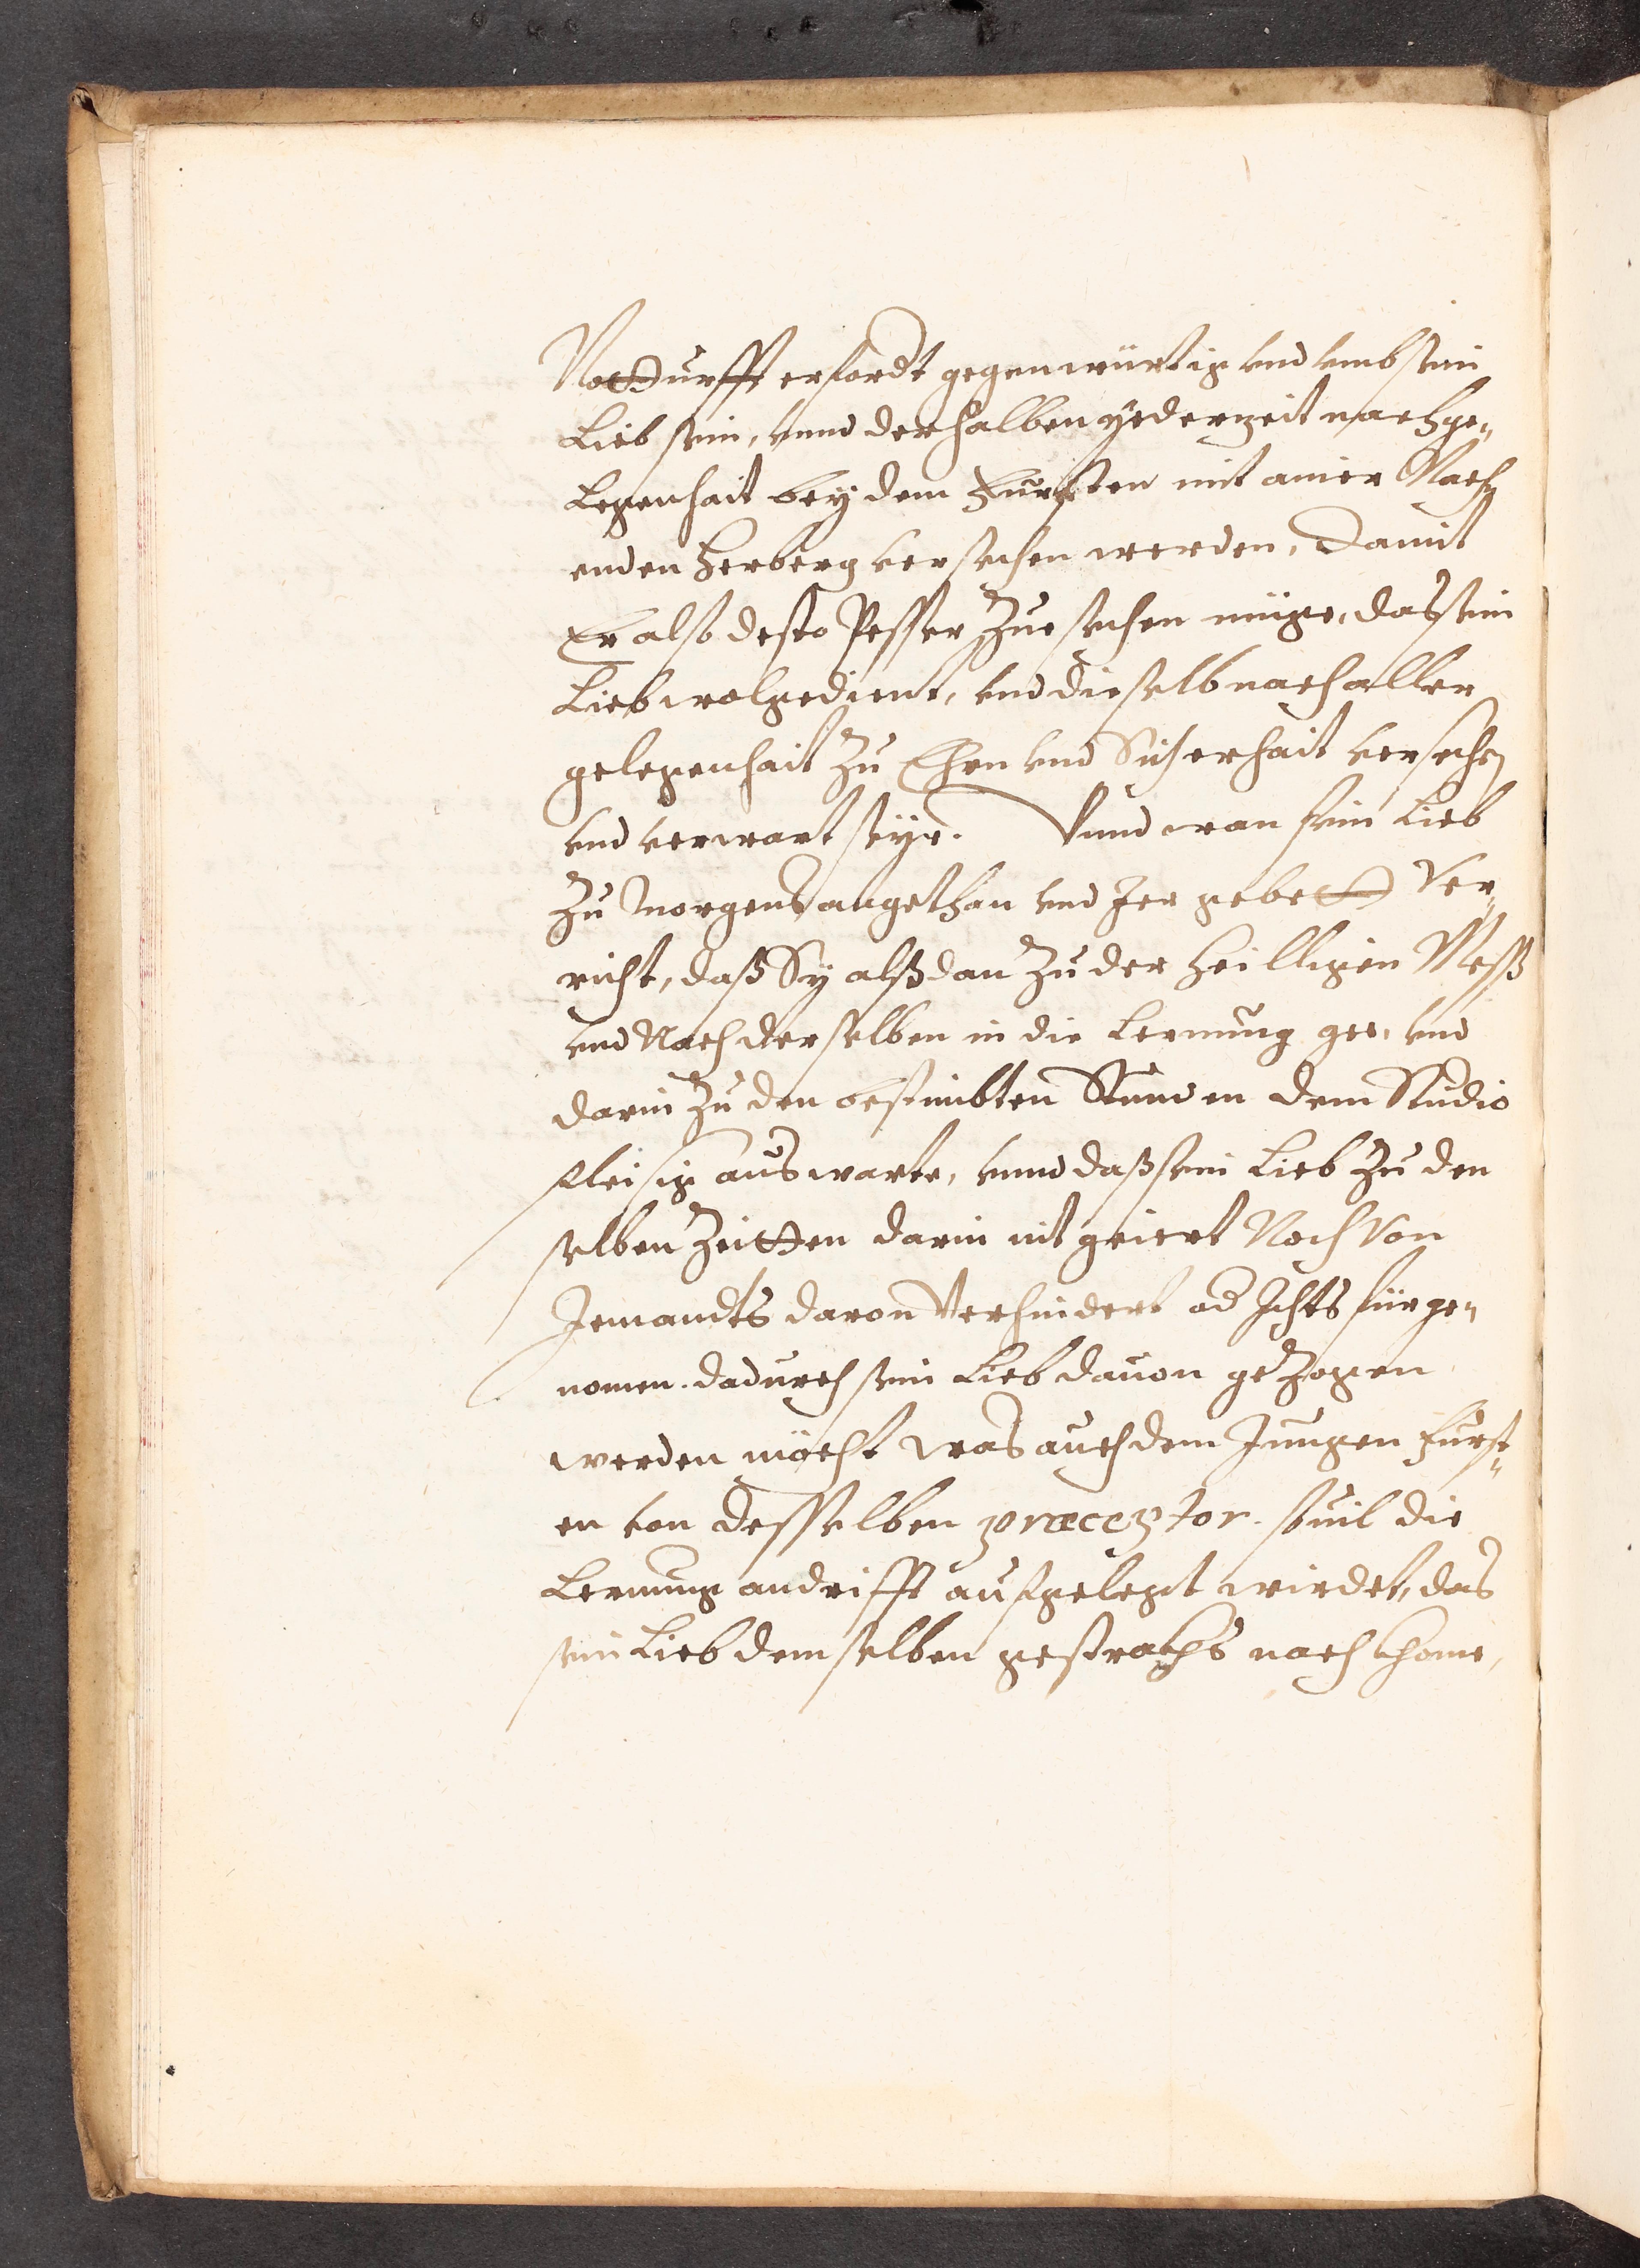 Notturfft erfordt gegenwürtig vnd vmb sein
Lieb sein, vnnd derhalben yederzeit nach ge„
Legenhait bey dem Fürsten mit ainer Nach„
enden Herberg versehen werden, Damit
Er also desto Pesser Zue sechen müge, das sein
Lieb wolgedient, vnd dieselb nach aller
gelegenhait Zu Ehrn vnd Sicherhait versechen
vnd verwart seÿe. Vnnd wan sein Lieb
Zu Morgens angethan vnd Jer gebett Ver„
richt, daß Sy alßdan Zu der heilligen Meß
vnd Nach derselben in die Lernung gee, vnd
darin Zu den bestimbten Stunden dem Studio
fleisig auswarte, vnnd daß sein Lieb Zu den
selben Zeitten darin nit geiert Noch Von
Jemandts daron Verhindert od Jchts fürge„
nomen. dadurch sein Lieb dauon geZogen
werden möcht was auch dem Jungen Fürst„
en von desselben præceptor. souil die
Lernung andrifft aufgelegt wirdet, das
sein Lieb demselben gestrachs nach khome,